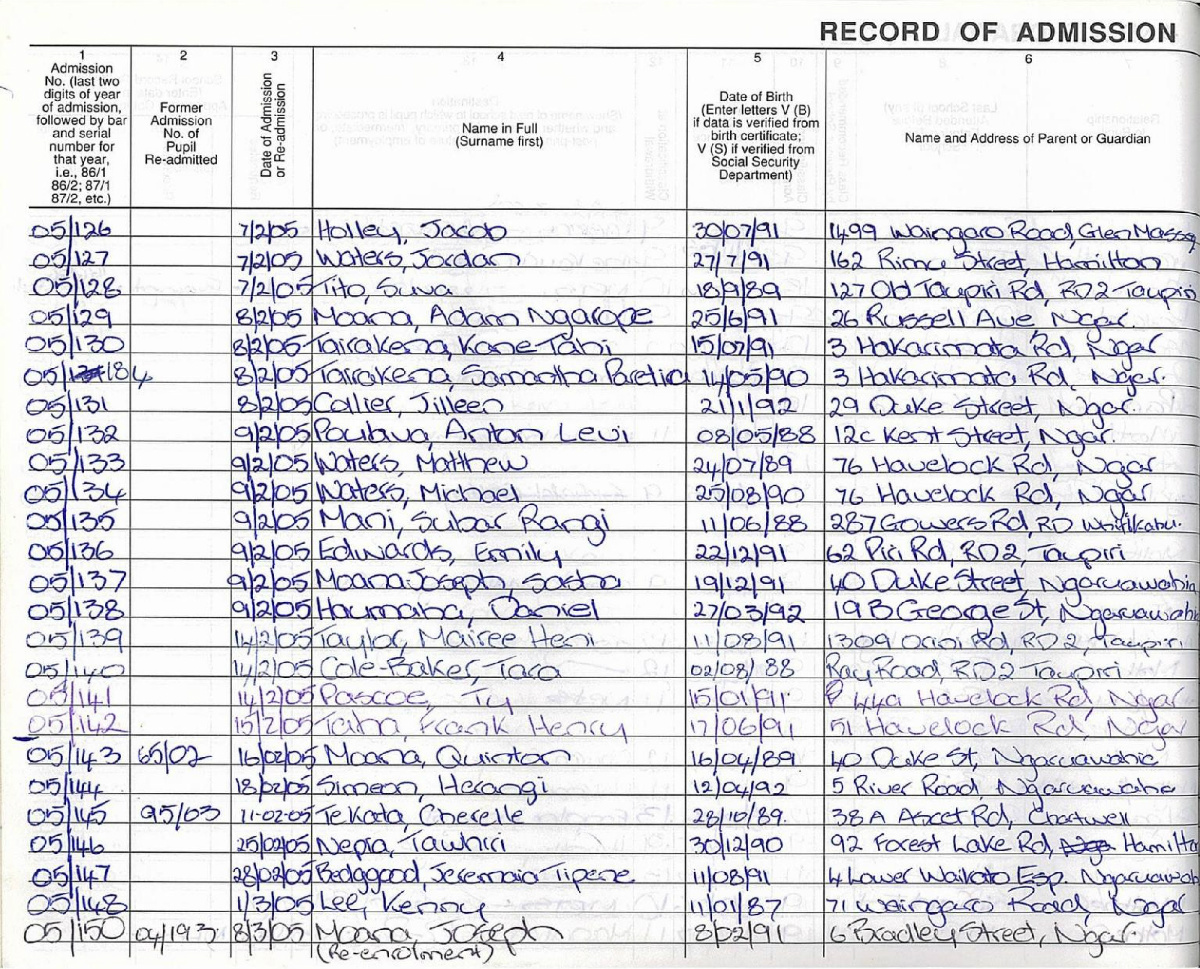 RECORD OF ADMISSION
1 2 3 4 5 6
Admission No. (last two digits of year of admission, followed by bar and serial number for that year, i.e., 86/1 86/2; 87/1 87/2, etc.)
Former Admission No. of Pupil Re-admitted
Date of Admission or Re-admission
Name in Full (Surname first)
Date of Birth (Enter letters V (B) if data is verified from birth certificate; V (S) if verified from Social Security Department)
Name and Address of Parent or Guardian
05/126 7/2/05 Holley, Jacob 30/07/91 1499 Waingaro Road, Glen Massey
05/127 7/2/05 Waters, Jordan 27/7/91 162 Rimu Street, Hamilton
05/128 7/2/05 Tito, Suva 18/9/89 127 Old Taupiri Rd, RD2 Taupiri
05/129 8/2/05 Moana, Adam 25/6/91 26 Russell Ave Ngar.
05/130 8/2/05 Tairakena, Kane Tahi 15/07/91 3 Hakarimata Rd, Ngar
05/184 8/2/05 Tairakena, Samantha 14/05/90 3 Hakarimata Rd, Ngar.
05/131 8/2/05 Collier, Jilleen 21/1/92 29 Duke Street, Ngar.
05/132 9/2/05 Anton Levi 08/05/88 12c Kent Street, Ngar.
05/133 9/2/05 Waters, Matthew 24/07/89 76 Havelock Rd, Ngar
05/134 9/2/05 Waters, Michael 25/08/90 76 Havelock Rd, Ngar
05/135 9/2/05 Mani, Subar Rangi 11/06/88 287 Gowers Rd, RD
05/136 9/2/05 Edwards, Emily 22/12/91 62 Piri Rd, RD2, Taupiri
05/137 9/2/05 Moana Joseph, Sasha 19/12/91 40 Duke Street, Ngaruawahia
05/138 9/2/05 Haumaha, Daniel 27/03/92 19B George St, Ngaruawahia
05/139 14/2/05 Taylor, Mairee Heni 11/08/91 1309 Orini Rd, RD2, Taupiri
05/140 14/2/05 Cole-Baker, Tara 02/08/88 Ray Road, RD2 Taupiri
05/141 14/2/05 Pascoe, Ty 15/01/91 44a Havelock Rd, Ngar
05/142 15/2/05 Taiha, Frank Henry 17/06/91 51 Havelock Rd, Ngar
05/143 65/02 16/02/05 Moana, Quinton 16/04/89 40 Duke St, Ngaruawahia
05/144 18/02/05 Simeon, Herangi 12/04/92 5 River Road, Ngaruawahia
05/145 95/03 11-02-05 Te Kata, Cherelle 28/10/89. 38A Ascot Rd, Chartwell
05/146 25/02/05 Nepia, Tawhiri 30/12/90 92 Forest Lake Rd, Hamilton
05/147 28/02/05 Bedggood, Jeremaia Tipene 11/08/91 4 Lower Waikato Esp. Ngaruawahia
05/148 1/3/05 Lee, Kenny 11/01/87 71 Waingaro Road, Ngar
05/150 04/193 8/3/05 Moana, Joseph 8/02/91 6 Bradley Street, Ngar.
(Re-enrolment)